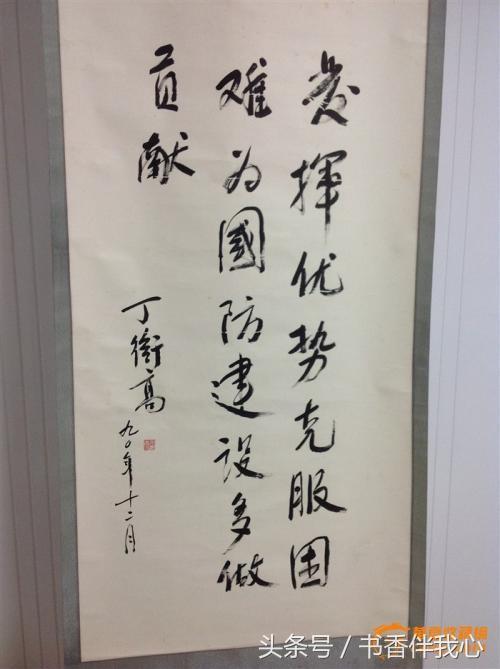 发揮优势克服困
难为國防建设多做
贡献
丁衡高
九〇年十二月
头条号／书香伴我心